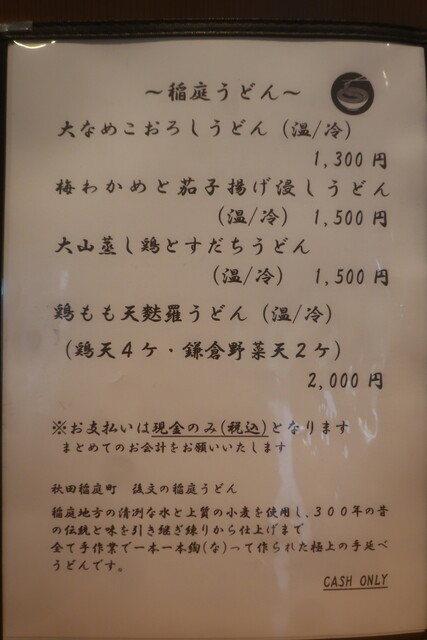 ～稲庭うどん～
大なめこおろしうどん（温/冷）
1,300 円
梅わかめと茄子揚げ浸しうどん
（温/冷） 1,500 円
大山蒸し鶏とすだちうどん
（温/冷） 1,500 円
鶏もも天麩羅うどん（温/冷）
（鶏天４ケ・鎌倉野菜天２ケ）
2,000 円
※お支払いは現金のみ(税込)となります
まとめてのお会計をお願いいたします
秋田稲庭町 後文の稲庭うどん
稲庭地方の清冽な水と上質の小麦を使用し、３００年の昔
の伝統と味を引き継ぎ練りから仕上げまで
全て手作業で一本一本綯(な)って作られた極上の手延べ
うどんです。
CASH ONLY